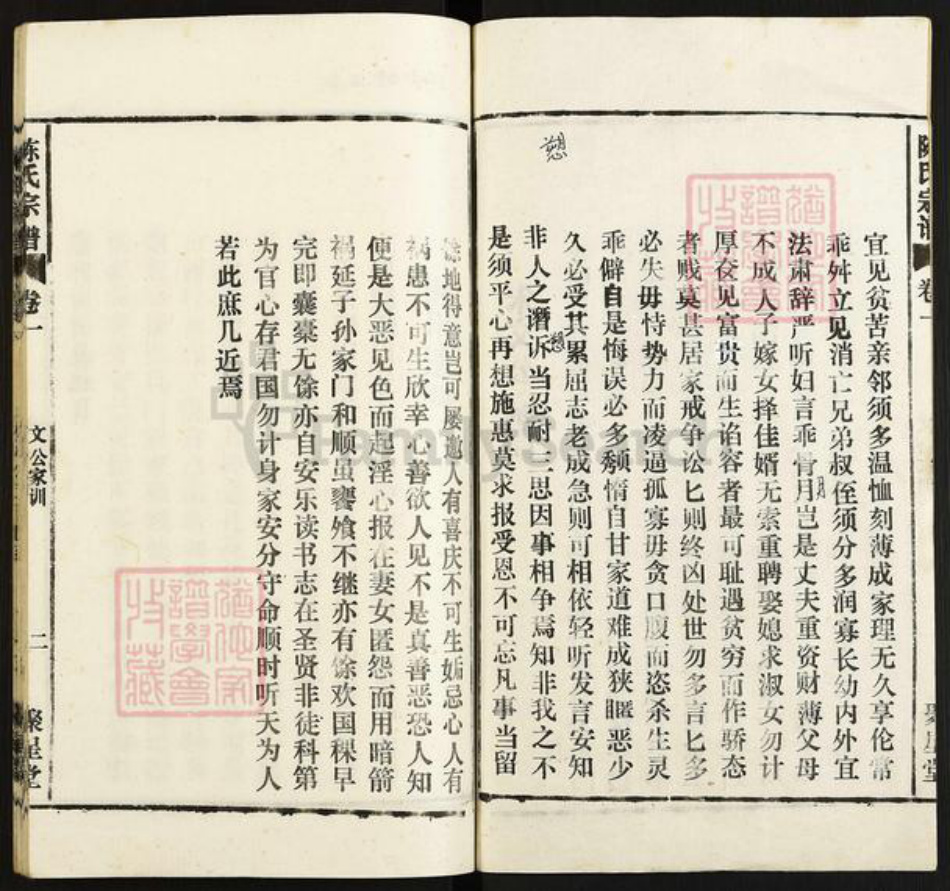 陈氏宗谱
卷一
想
宜见贫苦亲邻须多温恤刻薄成家理无久享伦常
乖舛立见消亡兄弟叔侄须分多润寡长幼内外宜
法肃辞严听妇言乖骨月岂是丈夫重资财薄父母
不成人子嫁女择佳婿无索重聘娶媳求淑女勿计
厚奁见富贵而生谄容者最可耻遇贫穷而作骄态
者贱莫甚居家戒争讼讼则终凶处世勿多言言多
必失毋恃势力而凌逼孤寡毋贪口腹而恣杀生灵
乖僻自是悔误必多颓惰自甘家道难成狭昵恶少
久必受其累屈志老成急则可相依轻听发言安知
非人之谮诉当忍耐三思因事相争焉知非我之不
是须平心再想施惠莫求报受恩不可忘凡事当留
馀地得意岂可屡邀人有喜庆不可生妒忌心人有
祸患不可生欣幸心善欲人见不是真善恶恐人知
便是大恶见色而起淫心报在妻女匿怨而用暗箭
祸延子孙家门和顺虽饔飧不继亦有馀欢国稞早
完即囊橐无馀亦自安乐读书志在圣贤非徒科第
为官心存君国勿计身家安分守命顺时听天为人
若此庶几近焉
陈氏宗谱
卷一
文公家训
二
聚星堂
FamilySearch